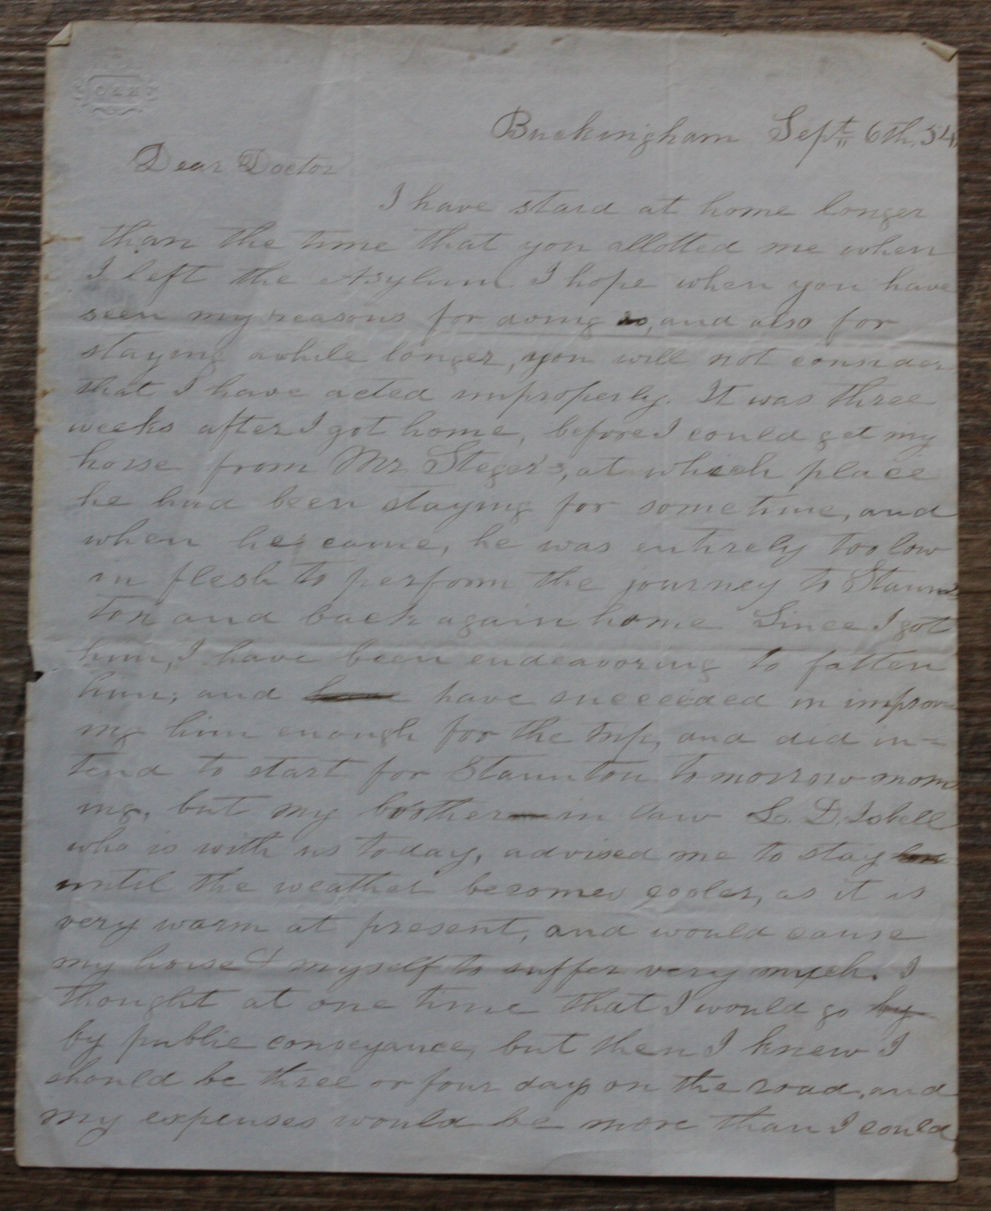 Buckingham Sept 6th, 54
Dear Doctor
I have staid at home longer
than the time that you allotted me when
I left the Asylum. I hope when you have
seen my reasons for doing so, and also for
staying awhile longer, you will not consider
that I have acted improperly. It was three
weeks after I got home, before I could get my
horse from Mr Steger's, at which place
he had been staying for sometime, and
when he came, he was entirely too low
in flesh to perform the journey to Staun-
ton and back again home. Since I got
him, I have been endeavoring to fatten
him; and have succeeded in improv
ing him enough for the trip, and did in-
tend to start for Staunton tomorrow morn
ing, but my brother in law L. D. Isbell
who is with us today, advised me to stay
until the weather becomes cooler, as it is
very warm at present, and would cause
my horse & myself to suffer very much. I
thought at one time that I would go by
by public conveyance, but then I knew I
should be three or four days on the road, and
my expenses would be more than I could